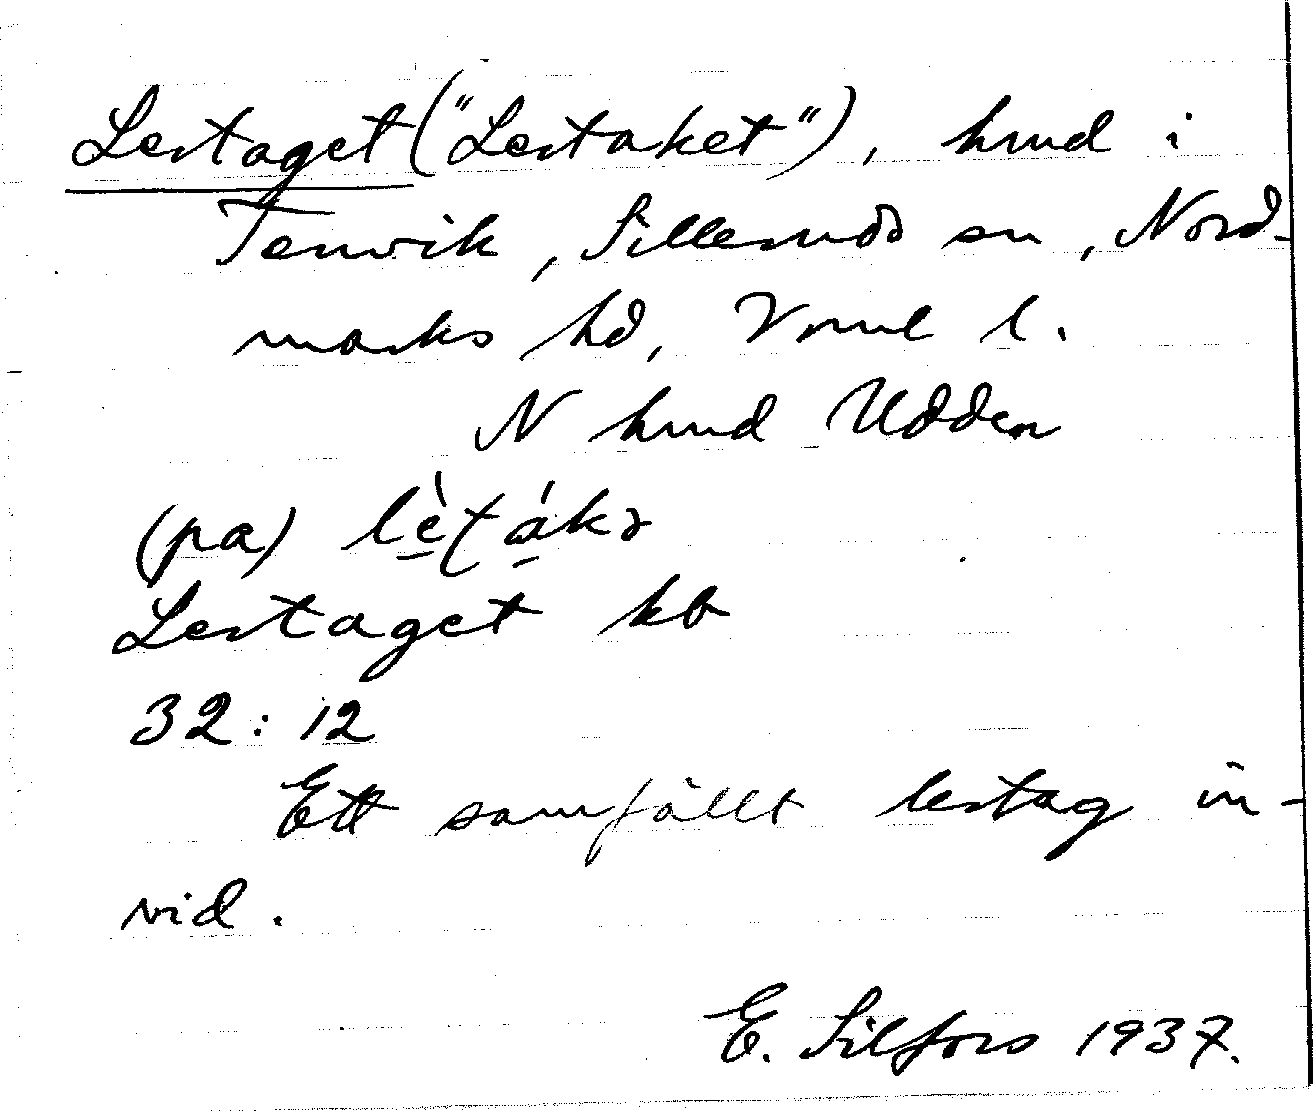 Lertaget ("Lertaket"), hmd i
Tenvik, Sillerud sn, Nord-
marks hd, Vrml l.
N hmd Udden
(pa) lèt̯ákə
Lertaget kb
32:12
Ett samfällt lertag in-
vid.
E. Silfors 1937.